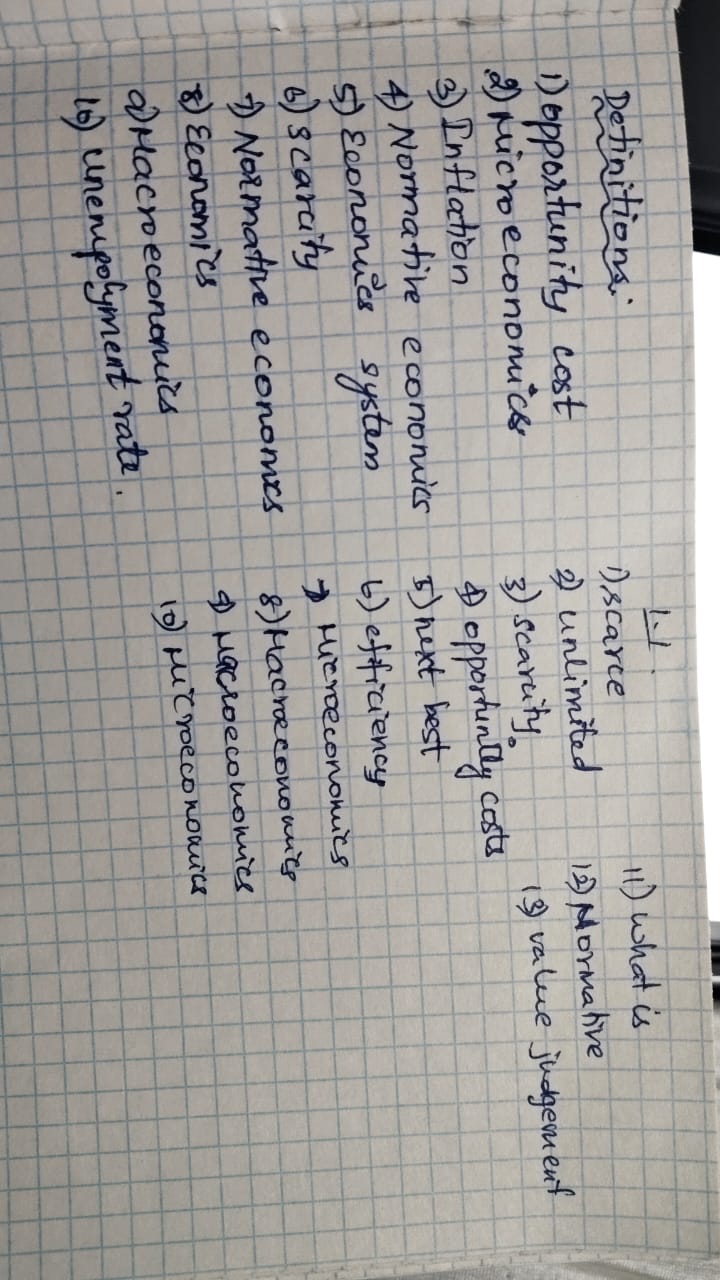 Definitions:
1) opportunity cost
2) Microeconomics
3) Inflation
4) Normative economics
5) Economics system
6) scarcity
7) Normative economcs
8) Economics
9) Macroeconomics
10) Unempolyment rate.
1.1.
1) scarce
2) unlimited
3) scarcity.
4) opportunity costs
5) next best
6) efficiency
7) Microeconomics
8) Macroeconomics
9) Macroeconomics
10) Microeconomics
11) what is
12) Normative
13) value judgement